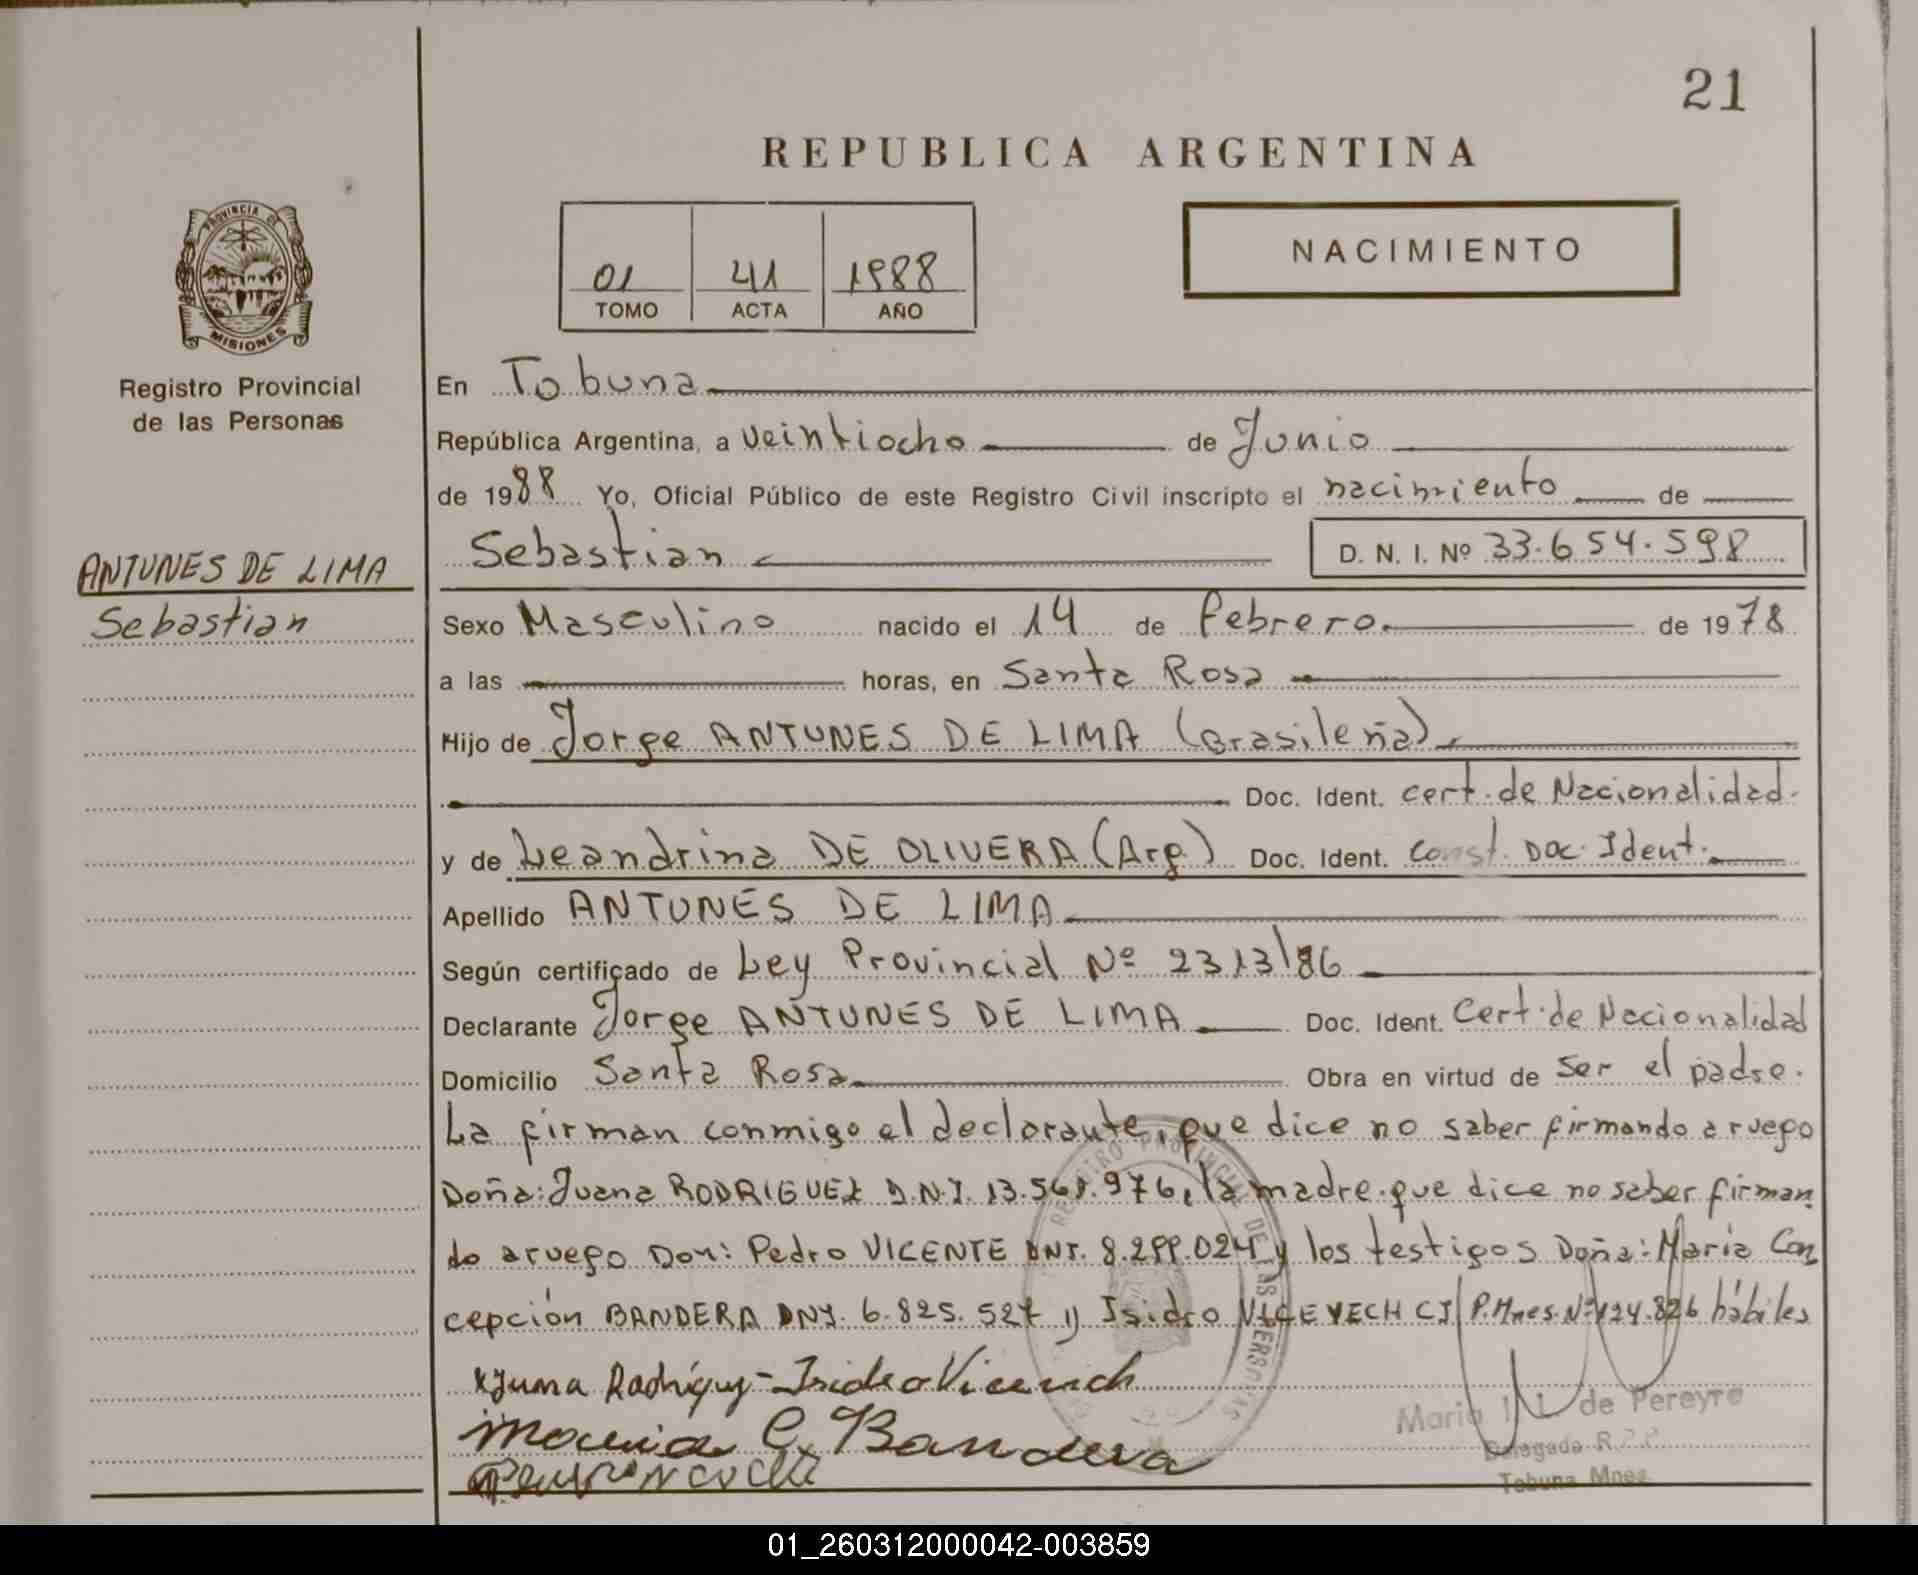 21
REPUBLICA ARGENTINA
PROVINCIA DE
MISIONES
Registro Provincial
de las Personas
01 41 1988
TOMO ACTA AÑO
NACIMIENTO
En Tobuna
República Argentina, a veintiocho de Junio
de 1988 Yo, Oficial Público de este Registro Civil inscripto el nacimiento de
Sebastian D. N. I. Nº 33.654.598
ANTUNES DE LIMA
Sebastian
Sexo Masculino nacido el 14 de febrero. de 1978
a las horas, en Santa Rosa
Hijo de Jorge ANTUNES DE LIMA (Brasileña)
Doc. Ident. cert. de Nacionalidad.
y de Leandrina DE OLIVERA (Arg.) Doc. Ident. Const. Doc. Ident.
Apellido ANTUNES DE LIMA
Según certificado de Ley Provincial Nº 2313/86
Declarante Jorge ANTUNES DE LIMA Doc. Ident. Cert. de Nacionalidad
Domicilio Santa Rosa Obra en virtud de ser el padre.
La firman conmigo el declarante, que dice no saber firmando a ruego
Doña: Juana RODRIGUEZ D.N.I. 13.561.976, la madre que dice no saber firman
do a ruego Don: Pedro VICENTE DNI. 8.299.024 y los testigos Doña: María Con
cepción BANDERA DNI. 6.825.527 y Isidro VICEVECH CI P. Mnes. Nº 124.826 hábiles
Juana Rodríguez - Isidro
Maria C. Bandera
REGISTRO PROVINCIAL DE LAS PERSONAS
Maria de Pereyra
Delegada R.P.P.
Tobuna Mnes.
01_260312000042-003859